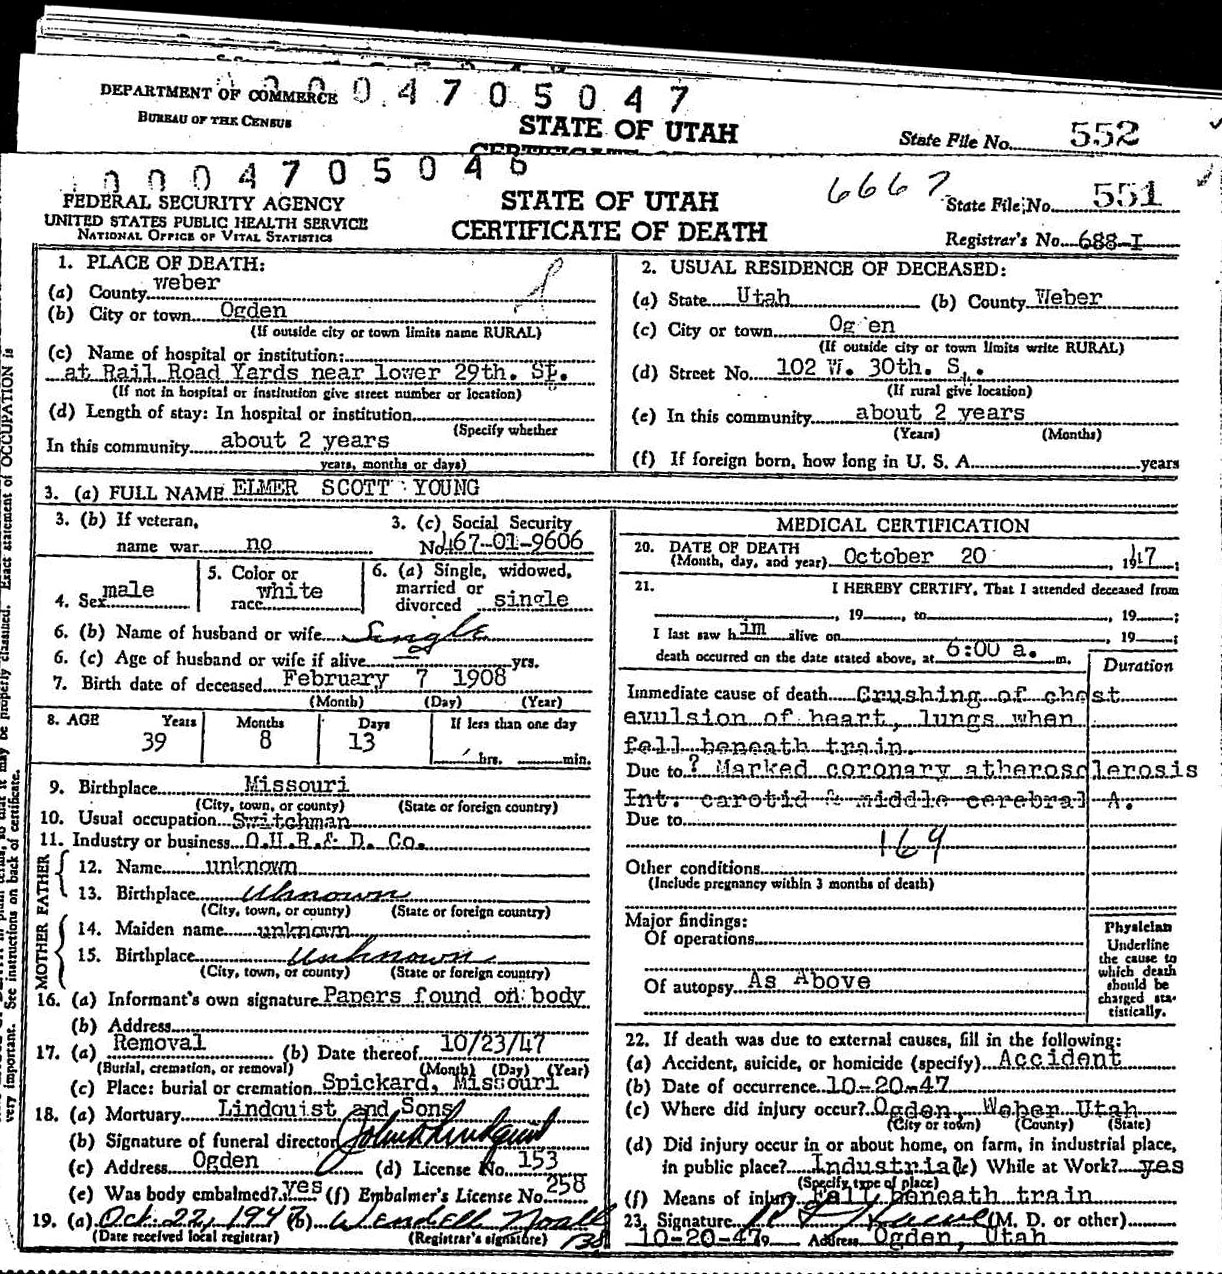 DEPARTMENT OF COMMERCE
BUREAU OF THE CENSUS
0004705047
STATE OF UTAH
State File No. 552
0004705046
FEDERAL SECURITY AGENCY
UNITED STATES PUBLIC HEALTH SERVICE
NATIONAL OFFICE OF VITAL STATISTICS
STATE OF UTAH
CERTIFICATE OF DEATH
6667
State File No. 551
Registrar's No. 688-I
1. PLACE OF DEATH:
(a) County Weber
(b) City or town Ogden
(If outside city or town limits name RURAL)
(c) Name of hospital or institution:
at Rail Road Yards near lower 29th. St.
(If not in hospital or institution give street number or location)
(d) Length of stay: In hospital or institution
(Specify whether
In this community about 2 years
years, months or days)
2. USUAL RESIDENCE OF DECEASED:
(a) State Utah (b) County Weber
(c) City or town Og en
(If outside city or town limits write RURAL)
(d) Street No. 102 W. 30th. S.
(If rural give location)
(e) In this community about 2 years
(Years) (Months)
(f) If foreign born, how long in U. S. A. years
3. (a) FULL NAME ELMER SCOTT YOUNG
3. (b) If veteran,
name war no
3. (c) Social Security
No. 467-01-9606
4. Sex male
5. Color or
race white
6. (a) Single, widowed,
married or
divorced single
6. (b) Name of husband or wife Single
6. (c) Age of husband or wife if alive yrs.
7. Birth date of deceased February 7 1908
(Month) (Day) (Year)
8. AGE Years Months Days If less than one day
39 8 13 hrs. min.
9. Birthplace Missouri
(City, town, or county) (State or foreign country)
10. Usual occupation Switchman
11. Industry or business O.U.R.& D. Co.
FATHER
12. Name unknown
13. Birthplace Unknown
(City, town, or county) (State or foreign country)
MOTHER
14. Maiden name unknown
15. Birthplace Unknown
(City, town, or county) (State or foreign country)
16. (a) Informant's own signature Papers found on body
(b) Address
17. (a) Removal (b) Date thereof 10/23/47
(Burial, cremation, or removal) (Month) (Day) (Year)
(c) Place: burial or cremation Spickard, Missouri
18. (a) Mortuary Lindquist and Sons
(b) Signature of funeral director John A Lindquist
(c) Address Ogden (d) License No. 153
(e) Was body embalmed? yes (f) Embalmer's License No. 258
19. (a) Oct. 22, 1947 (b) Wendell Noall
(Date received local registrar) (Registrar's signature)
MEDICAL CERTIFICATION
20. DATE OF DEATH
(Month, day, and year) October 20, 1947;
21. I HEREBY CERTIFY, That I attended deceased from
, 19 , to , 19 ;
I last saw him alive on , 19 ;
death occurred on the date stated above, at 6:00 a. m.
Duration
Immediate cause of death Crushing of chest
evulsion of heart, lungs when
fell beneath train.
Due to ? Marked coronary atherosclerosis
Int. carotid & middle cerebral A.
Due to
169
Other conditions
(Include pregnancy within 3 months of death)
Major findings:
Of operations
Of autopsy As Above
Physician
Underline
the cause to
which death
should be
charged sta-
tistically.
22. If death was due to external causes, fill in the following:
(a) Accident, suicide, or homicide (specify) Accident
(b) Date of occurrence 10-20-47
(c) Where did injury occur? Ogden, Weber Utah
(City or town) (County) (State)
(d) Did injury occur in or about home, on farm, in industrial place,
in public place? Industrial (e) While at Work? yes
(Specify type of place)
(f) Means of injury Fall beneath train
23. Signature (M. D. or other)
10-20-47 Address Ogden, Utah
Exact statement of OCCUPATION is
very important. See instructions on back of certificate.